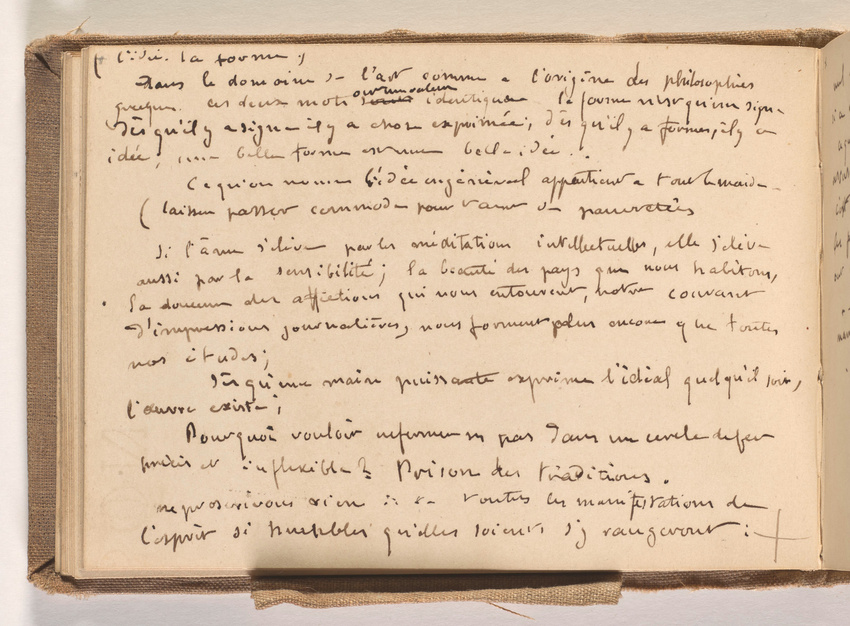 ( l'idée. la forme ;
Dans le domaine de l'art comme a l'origine des philosophies
grecques. ces deux mots sont identiques la forme n'est qu'un signe
Dès qu'il y a signe il y a chose exprimée ; dès qu'il y a forme, il y a
idée, une belle forme est une belle idée . .
Ce qu'on nomme l'idée en général appartient a tout le monde
( laisser passer commode pour tant de pauvretés
Si l'âme s'élève par les méditations intellectuelles, elle s'élève
aussi par la sensibilité ; la beauté des pays que nous habitons,
la douceur des affections qui nous entourent, notre courant
d'impressions journalières, nous forment plus encore que toutes
nos études ;
Dès qu'une main puissante exprime l'idéal quel qu'il soit,
l'œuvre existe ;
Pourquoi vouloir enfermer un pas dans un cercle de fer
précis et inflexible ? Prison des traditions .
ne proscrivons rien toutes les manifestations de
l'esprit si humbles qu'elles soient s'y rangeront :